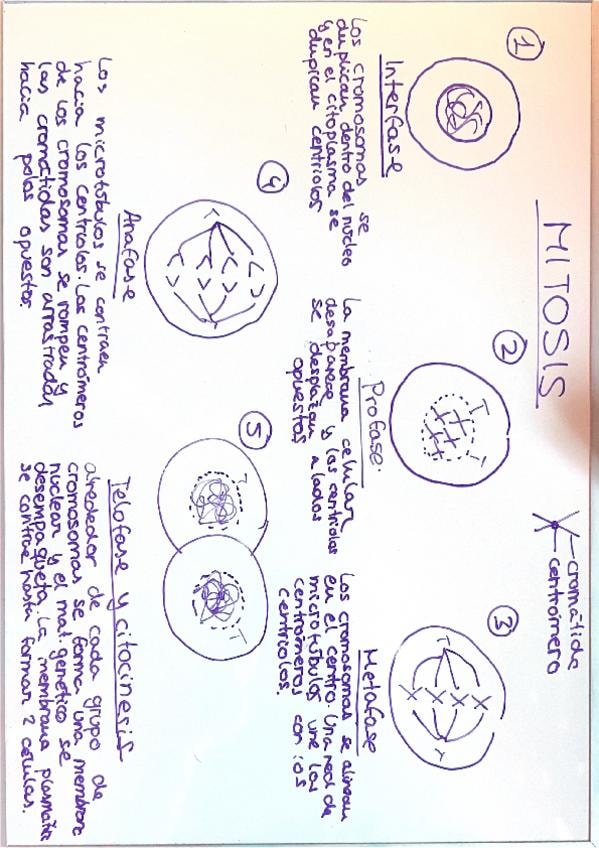 MITOSIS
cromátida
centrómero
1
Interfase
Los cromosomas se
duplican, dentro del núcleo
y en el citoplasma se
duplican centriolos
2
Profase.
La membrana celular
desaparece y los centriolos
se desplazan a lados
opuestos
3
Metafase
Los cromosomas se alinean
en el centro. Una red de
microtúbulos une los
centrómeros con los
centriolos.
4
Anafase
Los microtúbulos se contraen
hacia los centriolos. Los centrómeros
de los cromosomas se rompen y
las cromátidas son arrastradas
hacia polos opuestos.
5
Telofase y citocinesis
alrededor de cada grupo de
cromosomas se forma una membrana
nuclear y el mat. genético se
desempaqueta. La membrana plasmática
se contrae hasta formar 2 células.